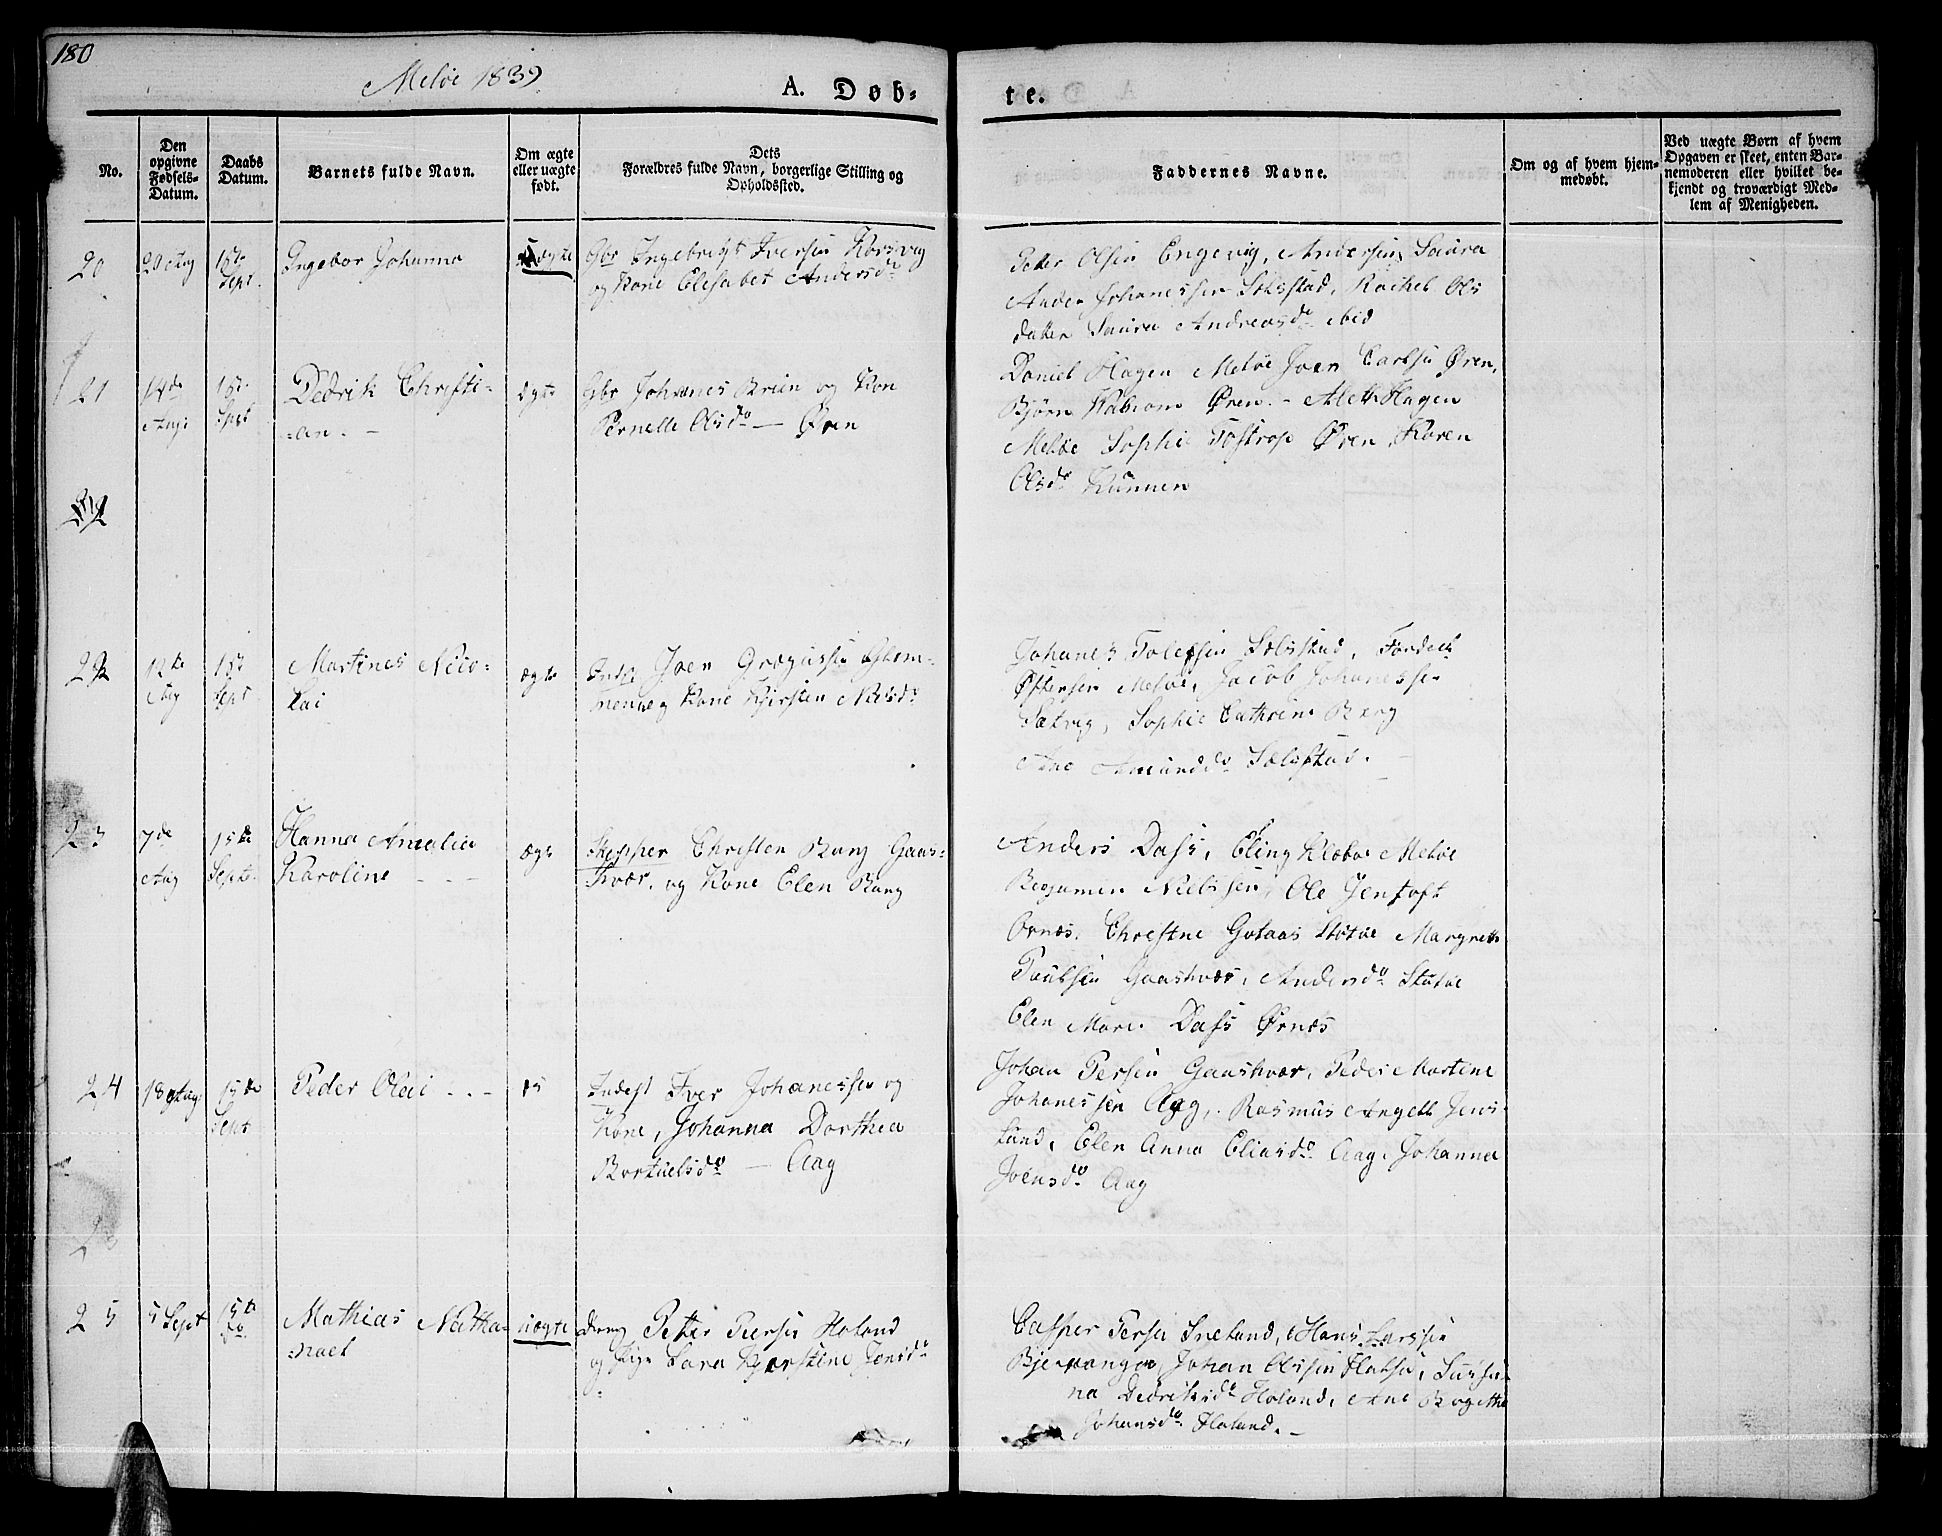 180
Meløe 1839
A. Døb-
te.
No.
Den opgivne Fødsels-Datum.
Daabs Datum.
Barnets fulde Navn.
Om ægte eller uægte født.
Dets Forældres fulde Navn, borgerlige Stilling og Opholdssted.
Faddernes Navne.
Om og af hvem hjem-medøbt.
Ved uægte Børn af hvem Opgaven er skeet, enten Bar-nemoderen eller hvilket be-kjendt og troværdigt Med-lem af Menigheden.
20
20 Aug
15de Sept.
Ingebor Johanna
ægte
Gbr Ingebrigt Iversen Korsvig
og Kone Elisabet Andersdr
Peter Olsen Engevig, Andersen Saura
Johanessen Selsstad, Rachel Ols
datter Saura Andreasdr ibid
21
14de Aug
15de Sept
Dedrik Christi-
an. -
ægte
Gbr Johanes Brun og Kone
Pernelle Olsdr — Øren
Daniel Hagen Meløe Joen Carlsen Øren,
Bjørn Øren. - Aleth Hagen
Meløe Sophie Tostrup Øren, Karen
Olsdr Kunnen
22
12te Aug
15de Sept
Martines Nico-
lai
ægte
Inds. Joen Grægussen Glom-
men og Kone Kjersten Nilsdr
Johanes Tolefsen Selsstad,
Meløe, Jacob Johanessen
Sætvig, Sophie Cathrine Berg
Ane Amundsdr Selsstad. -
23
7de Aug
15de Sept.
Hanna Amalia
Karoline - - -
ægte
Skipper Christen Bang Gaas-
kvær, og Kone Elen Bang
Anders Dass, Eling Klæboe Meløe
Benjamin Nielssen, Ole Jentoft
Ornæs, Christne Gotaas Støtøe Margrethe
Paulsen Gaaskvær, Andersdr Støtøe
Elen Marie Dass Ørnæs
24
18 Aug
15de Sept
Peder Oleai - - -
Inderst Iver Johanessen og
Kone, Johanna Dorthea
Bortuelsdr — Aag
Johan Persen Gaaskvær, Peder Martin
Johanessen Aag, Rasmus Angell Jens-
Lund, Elen Anna Eliasdr Aag, Johanna
Joensdr Aag
25
5 Sept
15de do
Mathias Natha-
nael
uægte
Dreng Petter Persen Holand
og Pige Lara Kjerstine Jensdr
Casper Persen Sneland, Hans Larssen
Bjerangen, Johan Olssen Flatsn, Susan-
na Dedriksdr Holand, Ane Birgitha
Johansdr Holand. -